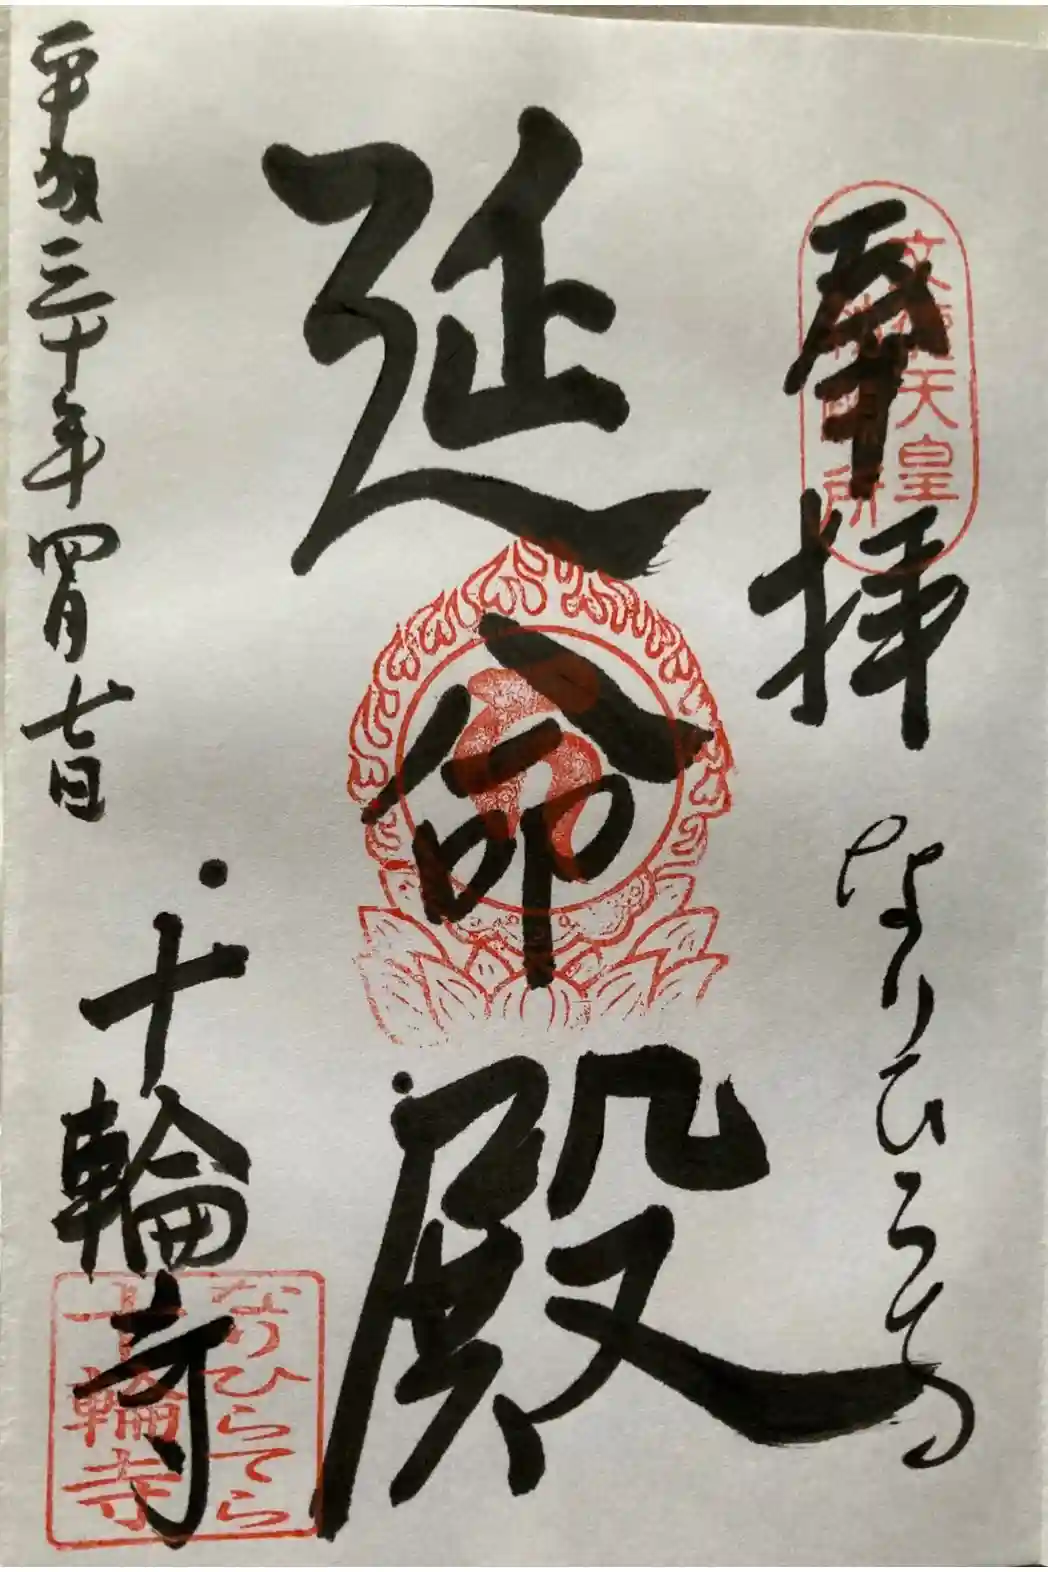 奉拝
なりひらてら
文徳天皇
所
延命殿
平成三十年四月七日
十輪寺
なりひらてら
十輪寺